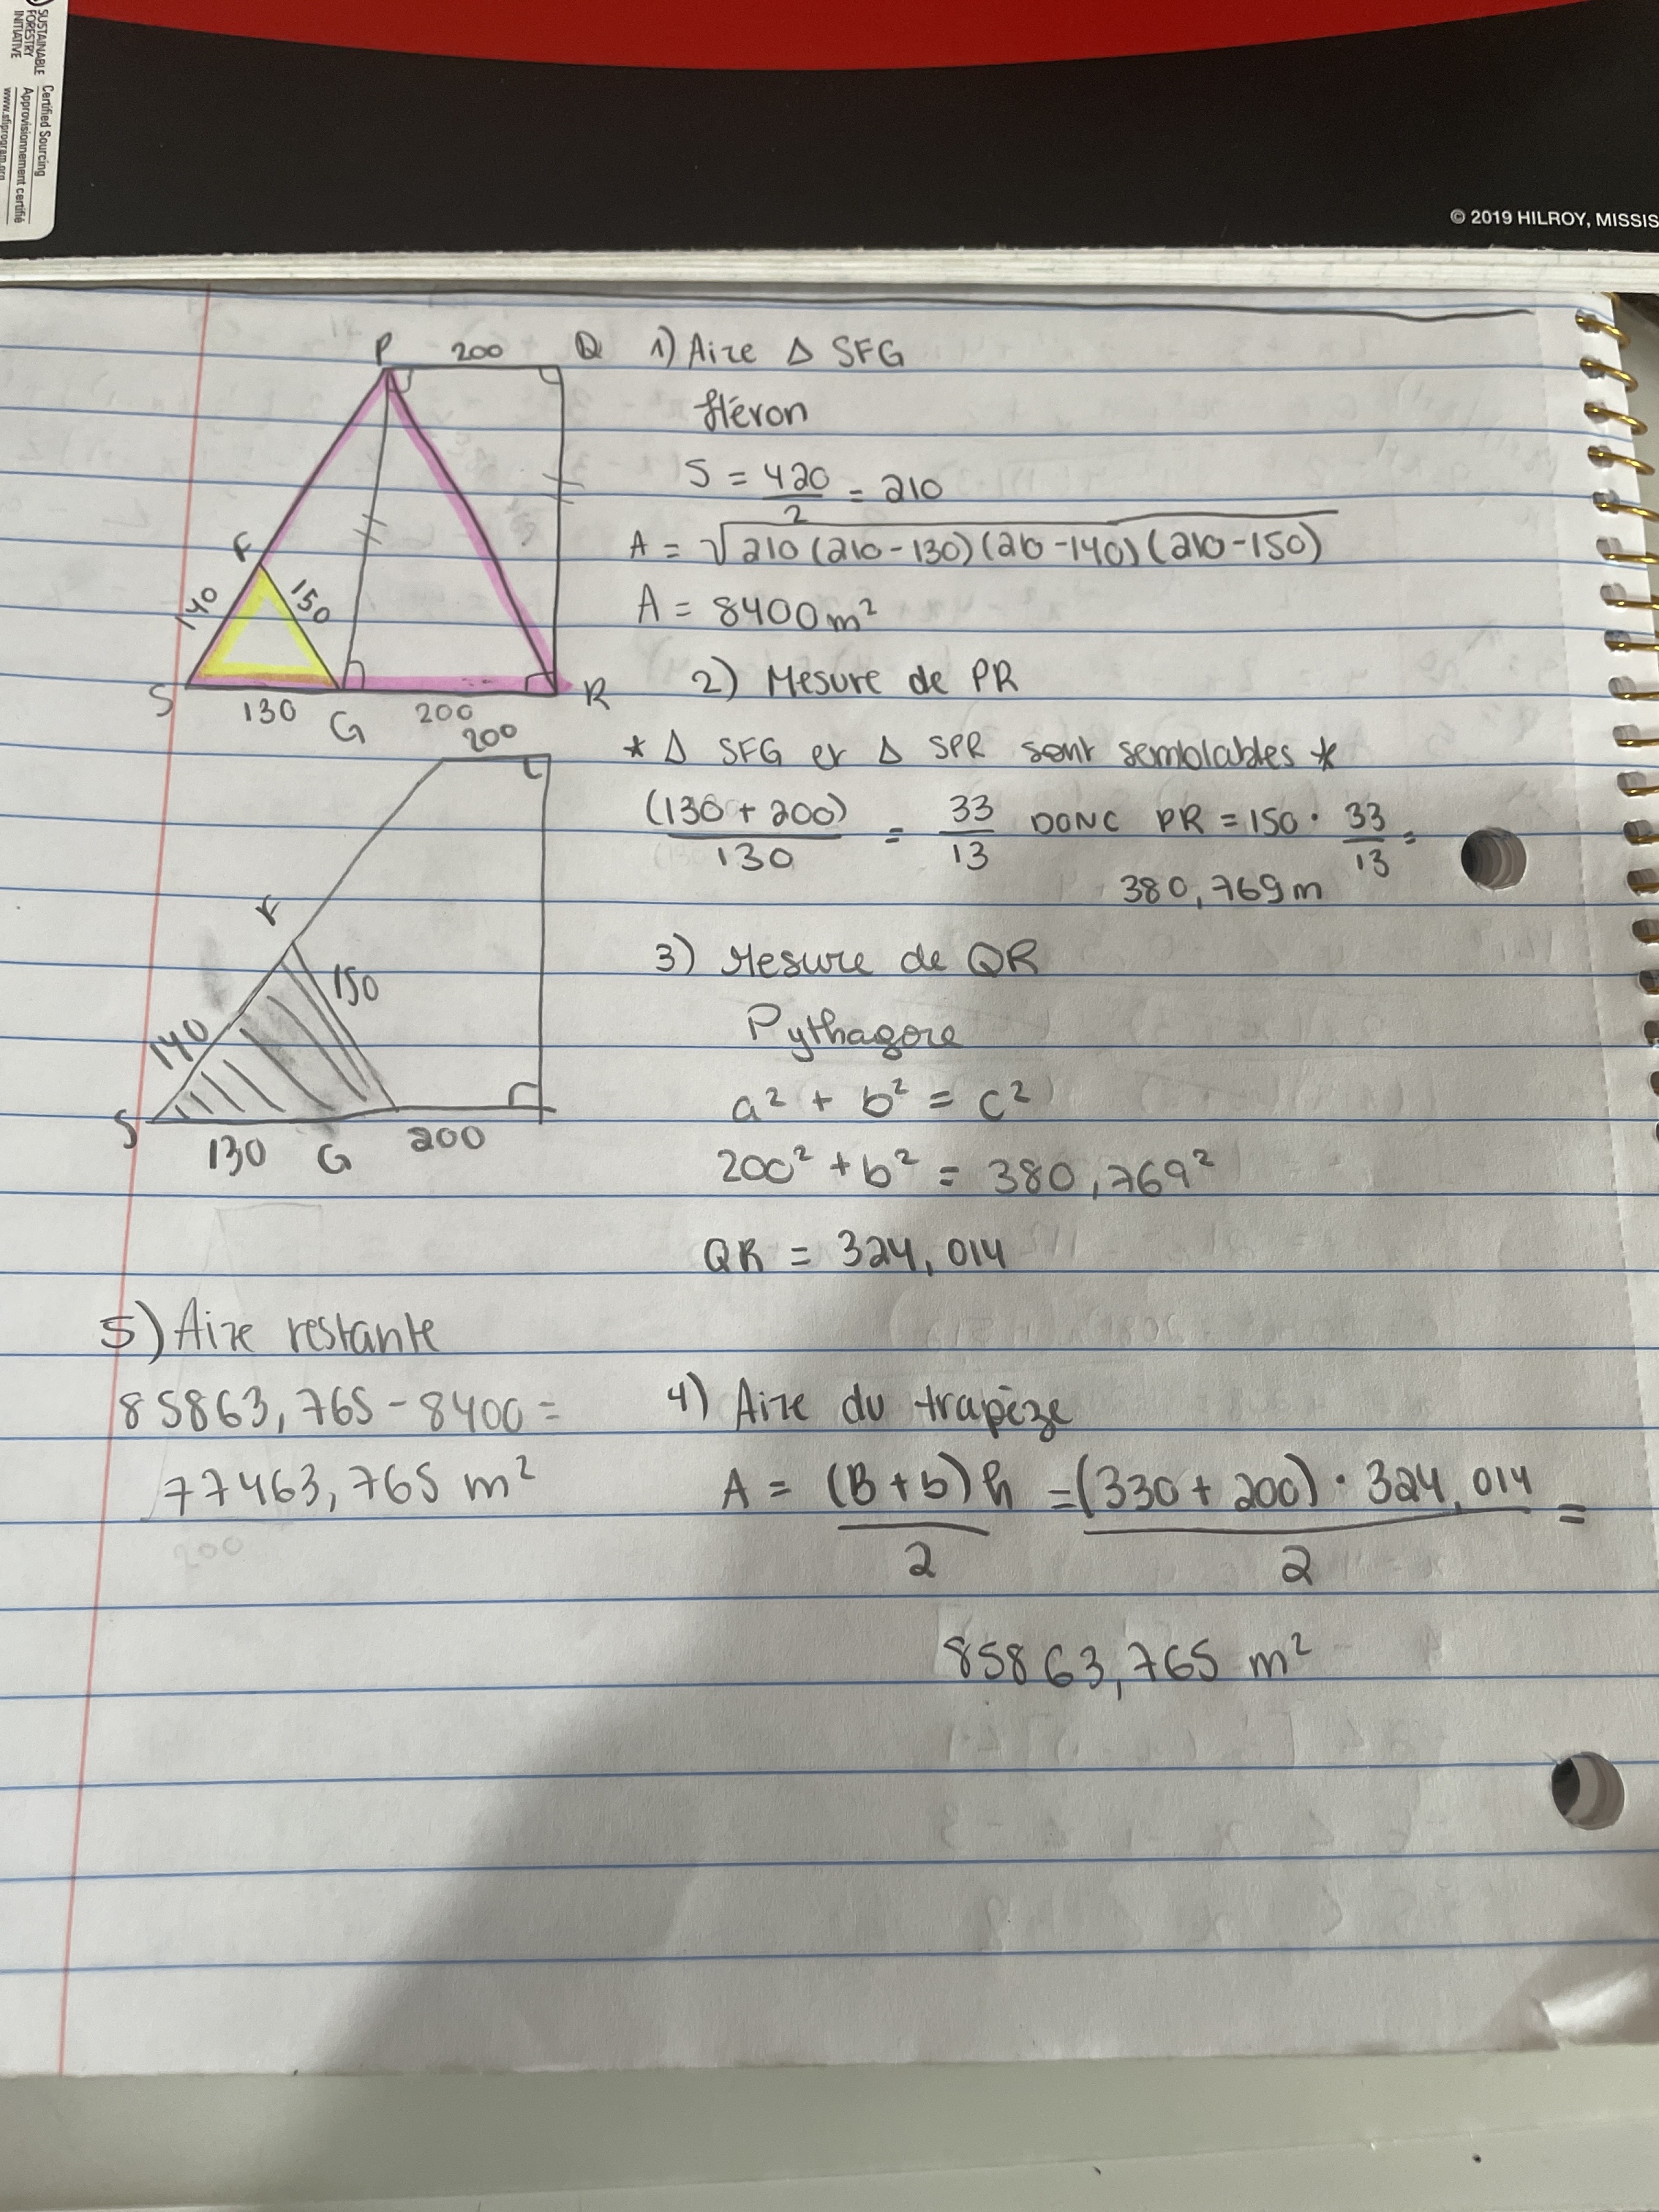 SUSTAINABLE
FORESTRY
INITIATIVE
Certified Sourcing
Approvisionnement certifié
www.sfiprogram.org
© 2019 HILROY, MISSIS
P 200 Q
F
140
150
S
130
G
200
R
1) Aire Δ SFG
Héron
S = 420/2 = 210
A = √210(210-130)(210-140)(210-150)
A = 8400m²
2) Mesure de PR
* Δ SFG et Δ SPR sont semblables *
(130 + 200)/130 = 33/13 DONC PR = 150 · 33/13 =
380,769m
200
F
140
150
S
130
G
200
3) Mesure de QR
Pythagore
a² + b² = c²
200² + b² = 380,769²
QR = 324,014
4) Aire du trapèze
A = (B+b)h/2 = (330 + 200) · 324,014/2 =
85863,765 m²
5) Aire restante
85863,765 - 8400 =
77463,765 m²
200